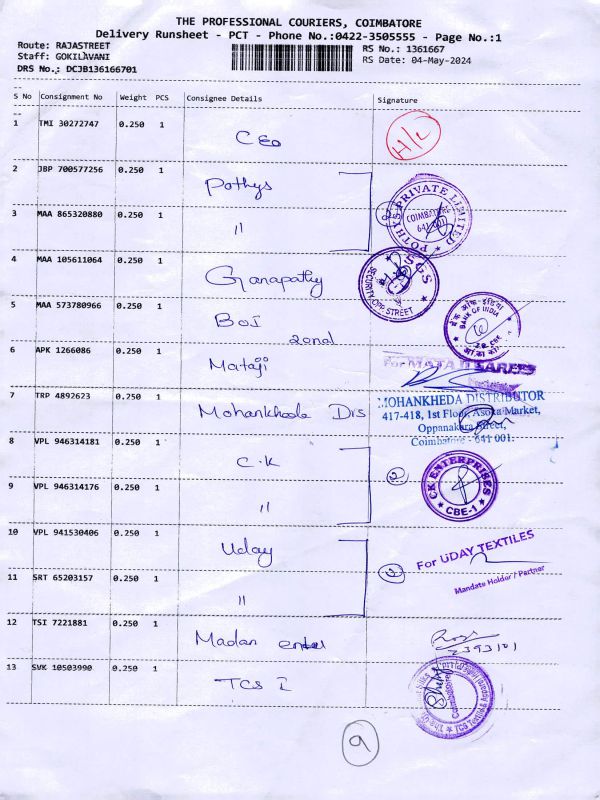 THE PROFESSIONAL COURIERS, COIMBATORE
Delivery Runsheet - PCT - Phone No.:0422-3505555 - Page No.:1
Route: RAJASTREET
RS No.: 1361667
Staff: GOKILAVANI
RS Date: 04-May-2024
DRS No.: DCJB136166701
S No Consignment No Weight PCS Consignee Details Signature
1 TMI 30272747 0.250 1 CEO H/L
2 JBP 700577256 0.250 1 Pothys
3 MAA 865320880 0.250 1 " 2 POTHYS PRIVATE LIMITED COIMBATORE 641 001
4 MAA 105611064 0.250 1 Ganapathy SGS SECURITY, OPP STREET
5 MAA 573780966 0.250 1 BOI zonal BANK OF INDIA
6 APK 1266086 0.250 1 Mataji For MATAJI SAREES
7 TRP 4892623 0.250 1 Mohankheda Drs
MOHANKHEDA DISTRIBUTOR
417-418, 1st Floor, Asoka Market,
Oppanakara Street,
Coimbatore - 641 001.
8 VPL 946314181 0.250 1 C.K 2 CK ENTERPRISES CBE-1
9 VPL 946314176 0.250 1 "
10 VPL 941530406 0.250 1 Uday For UDAY TEXTILES
11 SRT 65203157 0.250 1 " 2 Mandate Holder / Partner
12 TSI 7221881 0.250 1 Madan
13 SVK 10503990 0.250 1 TCS I
9